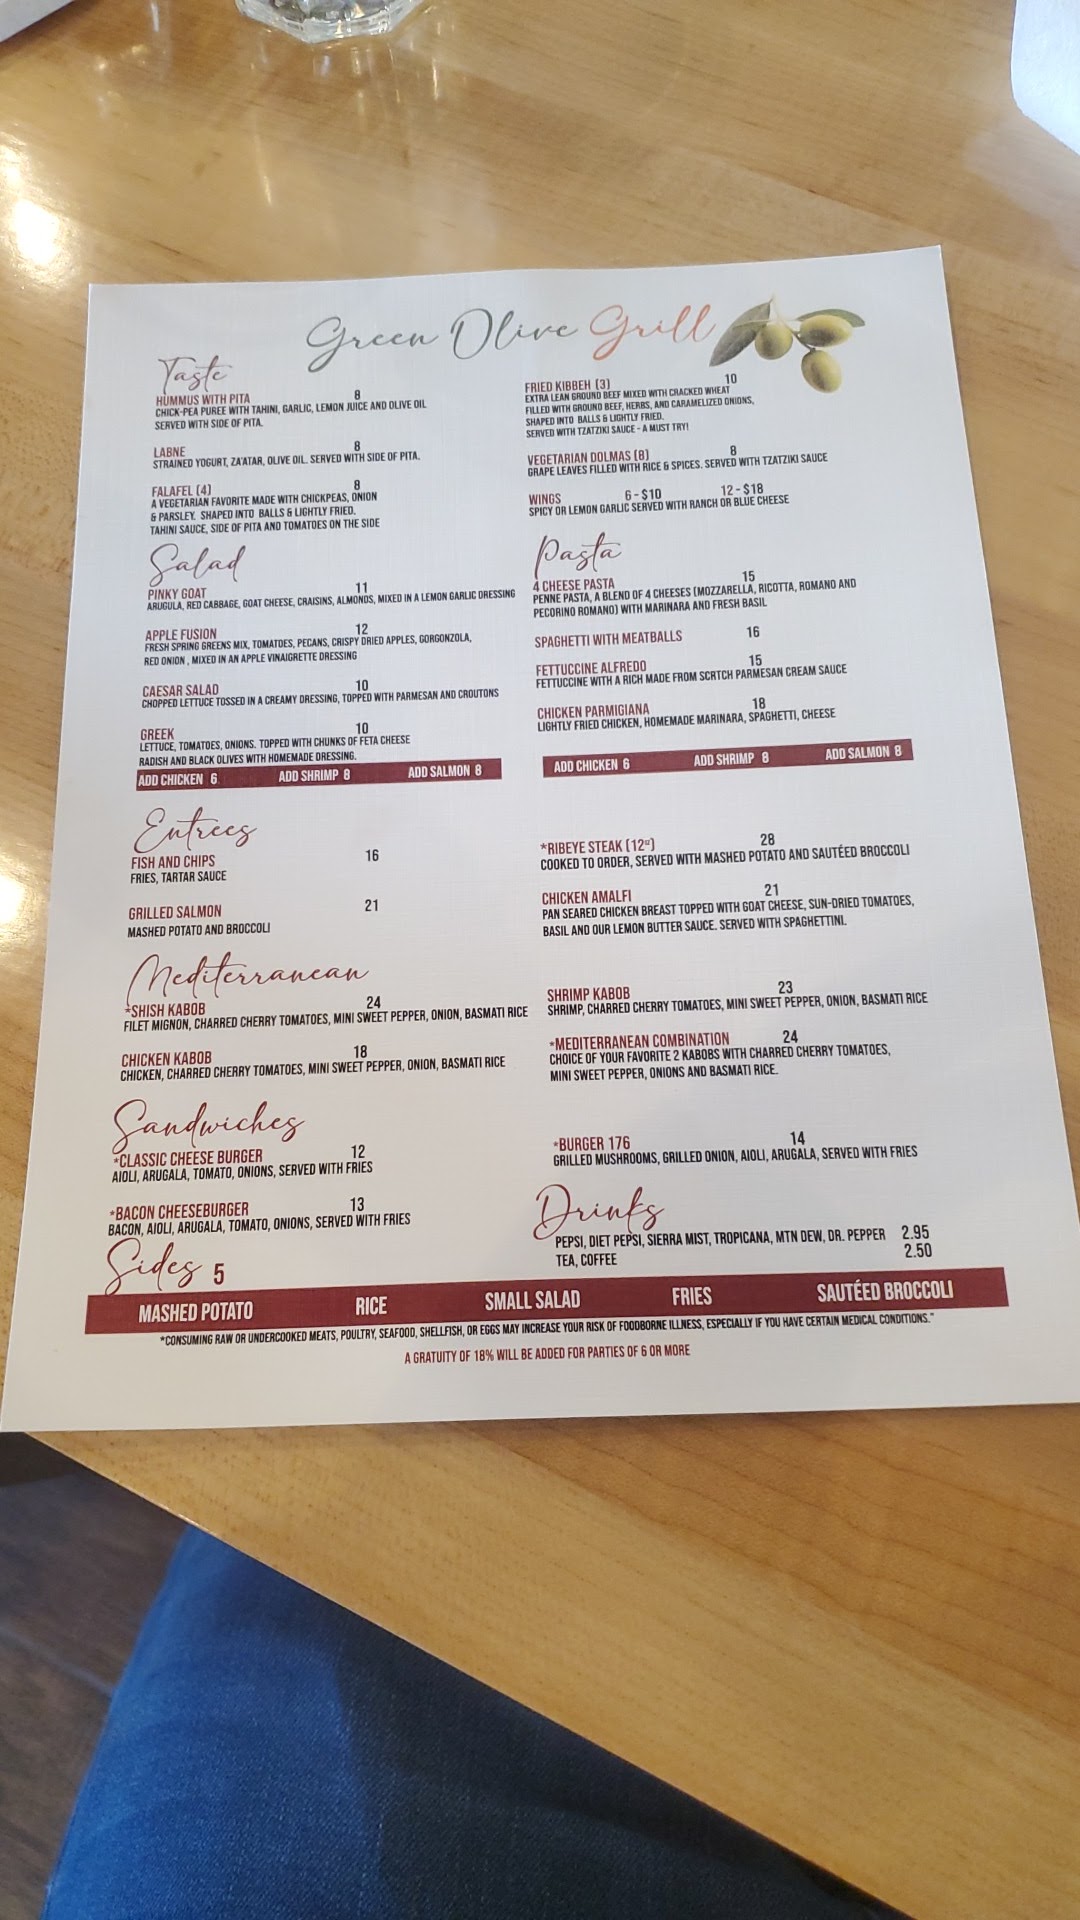 Green Olive Grill
Taste
HUMMUS WITH PITA 8
CHICK-PEA PUREE WITH TAHINI, GARLIC, LEMON JUICE AND OLIVE OIL
SERVED WITH SIDE OF PITA.
LABNE 8
STRAINED YOGURT, ZA'ATAR, OLIVE OIL. SERVED WITH SIDE OF PITA.
FALAFEL (4) 8
A VEGETARIAN FAVORITE MADE WITH CHICKPEAS, ONION
& PARSLEY. SHAPED INTO BALLS & LIGHTLY FRIED.
TAHINI SAUCE, SIDE OF PITA AND TOMATOES ON THE SIDE
FRIED KIBBEH (3) 10
EXTRA LEAN GROUND BEEF MIXED WITH CRACKED WHEAT
FILLED WITH GROUND BEEF, HERBS, AND CARAMELIZED ONIONS,
SHAPED INTO BALLS & LIGHTLY FRIED.
SERVED WITH TZATZIKI SAUCE - A MUST TRY!
VEGETARIAN DOLMAS (8) 8
GRAPE LEAVES FILLED WITH RICE & SPICES. SERVED WITH TZATZIKI SAUCE
WINGS 6-$10 12-$18
SPICY OR LEMON GARLIC SERVED WITH RANCH OR BLUE CHEESE
Salad
PINKY GOAT 11
ARUGULA, RED CABBAGE, GOAT CHEESE, CRAISINS, ALMONDS, MIXED IN A LEMON GARLIC DRESSING
APPLE FUSION 12
FRESH SPRING GREENS MIX, TOMATOES, PECANS, CRISPY DRIED APPLES, GORGONZOLA,
RED ONION , MIXED IN AN APPLE VINAIGRETTE DRESSING
CAESAR SALAD 10
CHOPPED LETTUCE TOSSED IN A CREAMY DRESSING, TOPPED WITH PARMESAN AND CROUTONS
GREEK 10
LETTUCE, TOMATOES, ONIONS. TOPPED WITH CHUNKS OF FETA CHEESE
RADISH AND BLACK OLIVES WITH HOMEMADE DRESSING.
ADD CHICKEN 6 ADD SHRIMP 8 ADD SALMON 8
Pasta
4 CHEESE PASTA 15
PENNE PASTA, A BLEND OF 4 CHEESES (MOZZARELLA, RICOTTA, ROMANO AND
PECORINO ROMANO) WITH MARINARA AND FRESH BASIL
SPAGHETTI WITH MEATBALLS 16
FETTUCCINE ALFREDO 15
FETTUCCINE WITH A RICH MADE FROM SCRTCH PARMESAN CREAM SAUCE
CHICKEN PARMIGIANA 18
LIGHTLY FRIED CHICKEN, HOMEMADE MARINARA, SPAGHETTI, CHEESE
ADD CHICKEN 6 ADD SHRIMP 8 ADD SALMON 8
Entrees
FISH AND CHIPS 16
FRIES, TARTAR SAUCE
GRILLED SALMON 21
MASHED POTATO AND BROCCOLI
*RIBEYE STEAK (12oz) 28
COOKED TO ORDER, SERVED WITH MASHED POTATO AND SAUTÉED BROCCOLI
CHICKEN AMALFI 21
PAN SEARED CHICKEN BREAST TOPPED WITH GOAT CHEESE, SUN-DRIED TOMATOES,
BASIL AND OUR LEMON BUTTER SAUCE. SERVED WITH SPAGHETTINI.
Mediterranean
*SHISH KABOB 24
FILET MIGNON, CHARRED CHERRY TOMATOES, MINI SWEET PEPPER, ONION, BASMATI RICE
CHICKEN KABOB 18
CHICKEN, CHARRED CHERRY TOMATOES, MINI SWEET PEPPER, ONION, BASMATI RICE
SHRIMP KABOB 23
SHRIMP, CHARRED CHERRY TOMATOES, MINI SWEET PEPPER, ONION, BASMATI RICE
*MEDITERRANEAN COMBINATION 24
CHOICE OF YOUR FAVORITE 2 KABOBS WITH CHARRED CHERRY TOMATOES,
MINI SWEET PEPPER, ONIONS AND BASMATI RICE.
Sandwiches
*CLASSIC CHEESE BURGER 12
AIOLI, ARUGALA, TOMATO, ONIONS, SERVED WITH FRIES
*BACON CHEESEBURGER 13
BACON, AIOLI, ARUGALA, TOMATO, ONIONS, SERVED WITH FRIES
*BURGER 176 14
GRILLED MUSHROOMS, GRILLED ONION, AIOLI, ARUGALA, SERVED WITH FRIES
Drinks
PEPSI, DIET PEPSI, SIERRA MIST, TROPICANA, MTN DEW, DR. PEPPER 2.95
TEA, COFFEE 2.50
Sides 5
MASHED POTATO RICE SMALL SALAD FRIES SAUTÉED BROCCOLI
*CONSUMING RAW OR UNDERCOOKED MEATS, POULTRY, SEAFOOD, SHELLFISH, OR EGGS MAY INCREASE YOUR RISK OF FOODBORNE ILLNESS, ESPECIALLY IF YOU HAVE CERTAIN MEDICAL CONDITIONS."
A GRATUITY OF 18% WILL BE ADDED FOR PARTIES OF 6 OR MORE